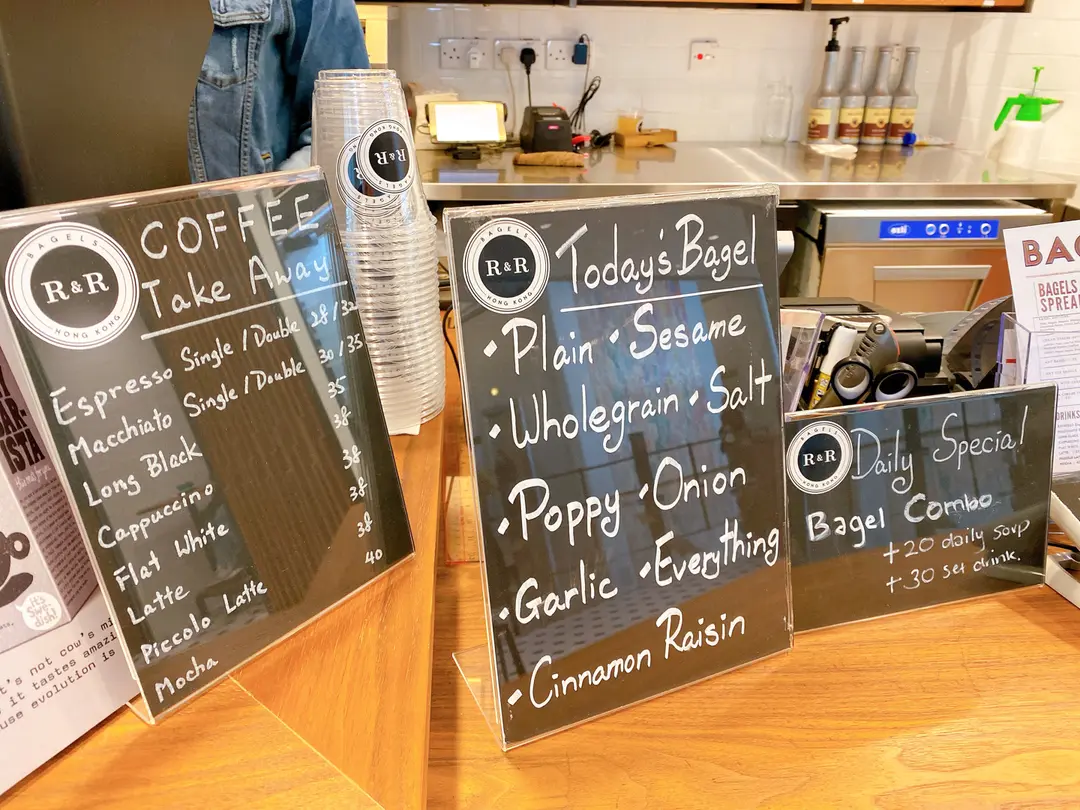 BAGELS
R&R
HONG KONG
COFFEE
Take Away
Espresso Single / Double 28 / 32
Macchiato Single / Double 30 / 35
Long Black 35
Cappuccino 38
Flat White 38
Latte 38
Piccolo Latte 38
Mocha 40
BAGELS
R&R
HONG KONG
Today's Bagel
• Plain • Sesame
• Wholegrain • Salt
• Poppy • Onion
• Garlic • Everything
• Cinnamon Raisin
BAGELS
R&R
HONG KONG
Daily Special
Bagel Combo
+20 daily soup
+30 set drink.
BAGELS
R&R
HONG KONG
BAG
BAGELS
SPREA
it's
Swe-
dish!
not cow's
it tastes
evolution is